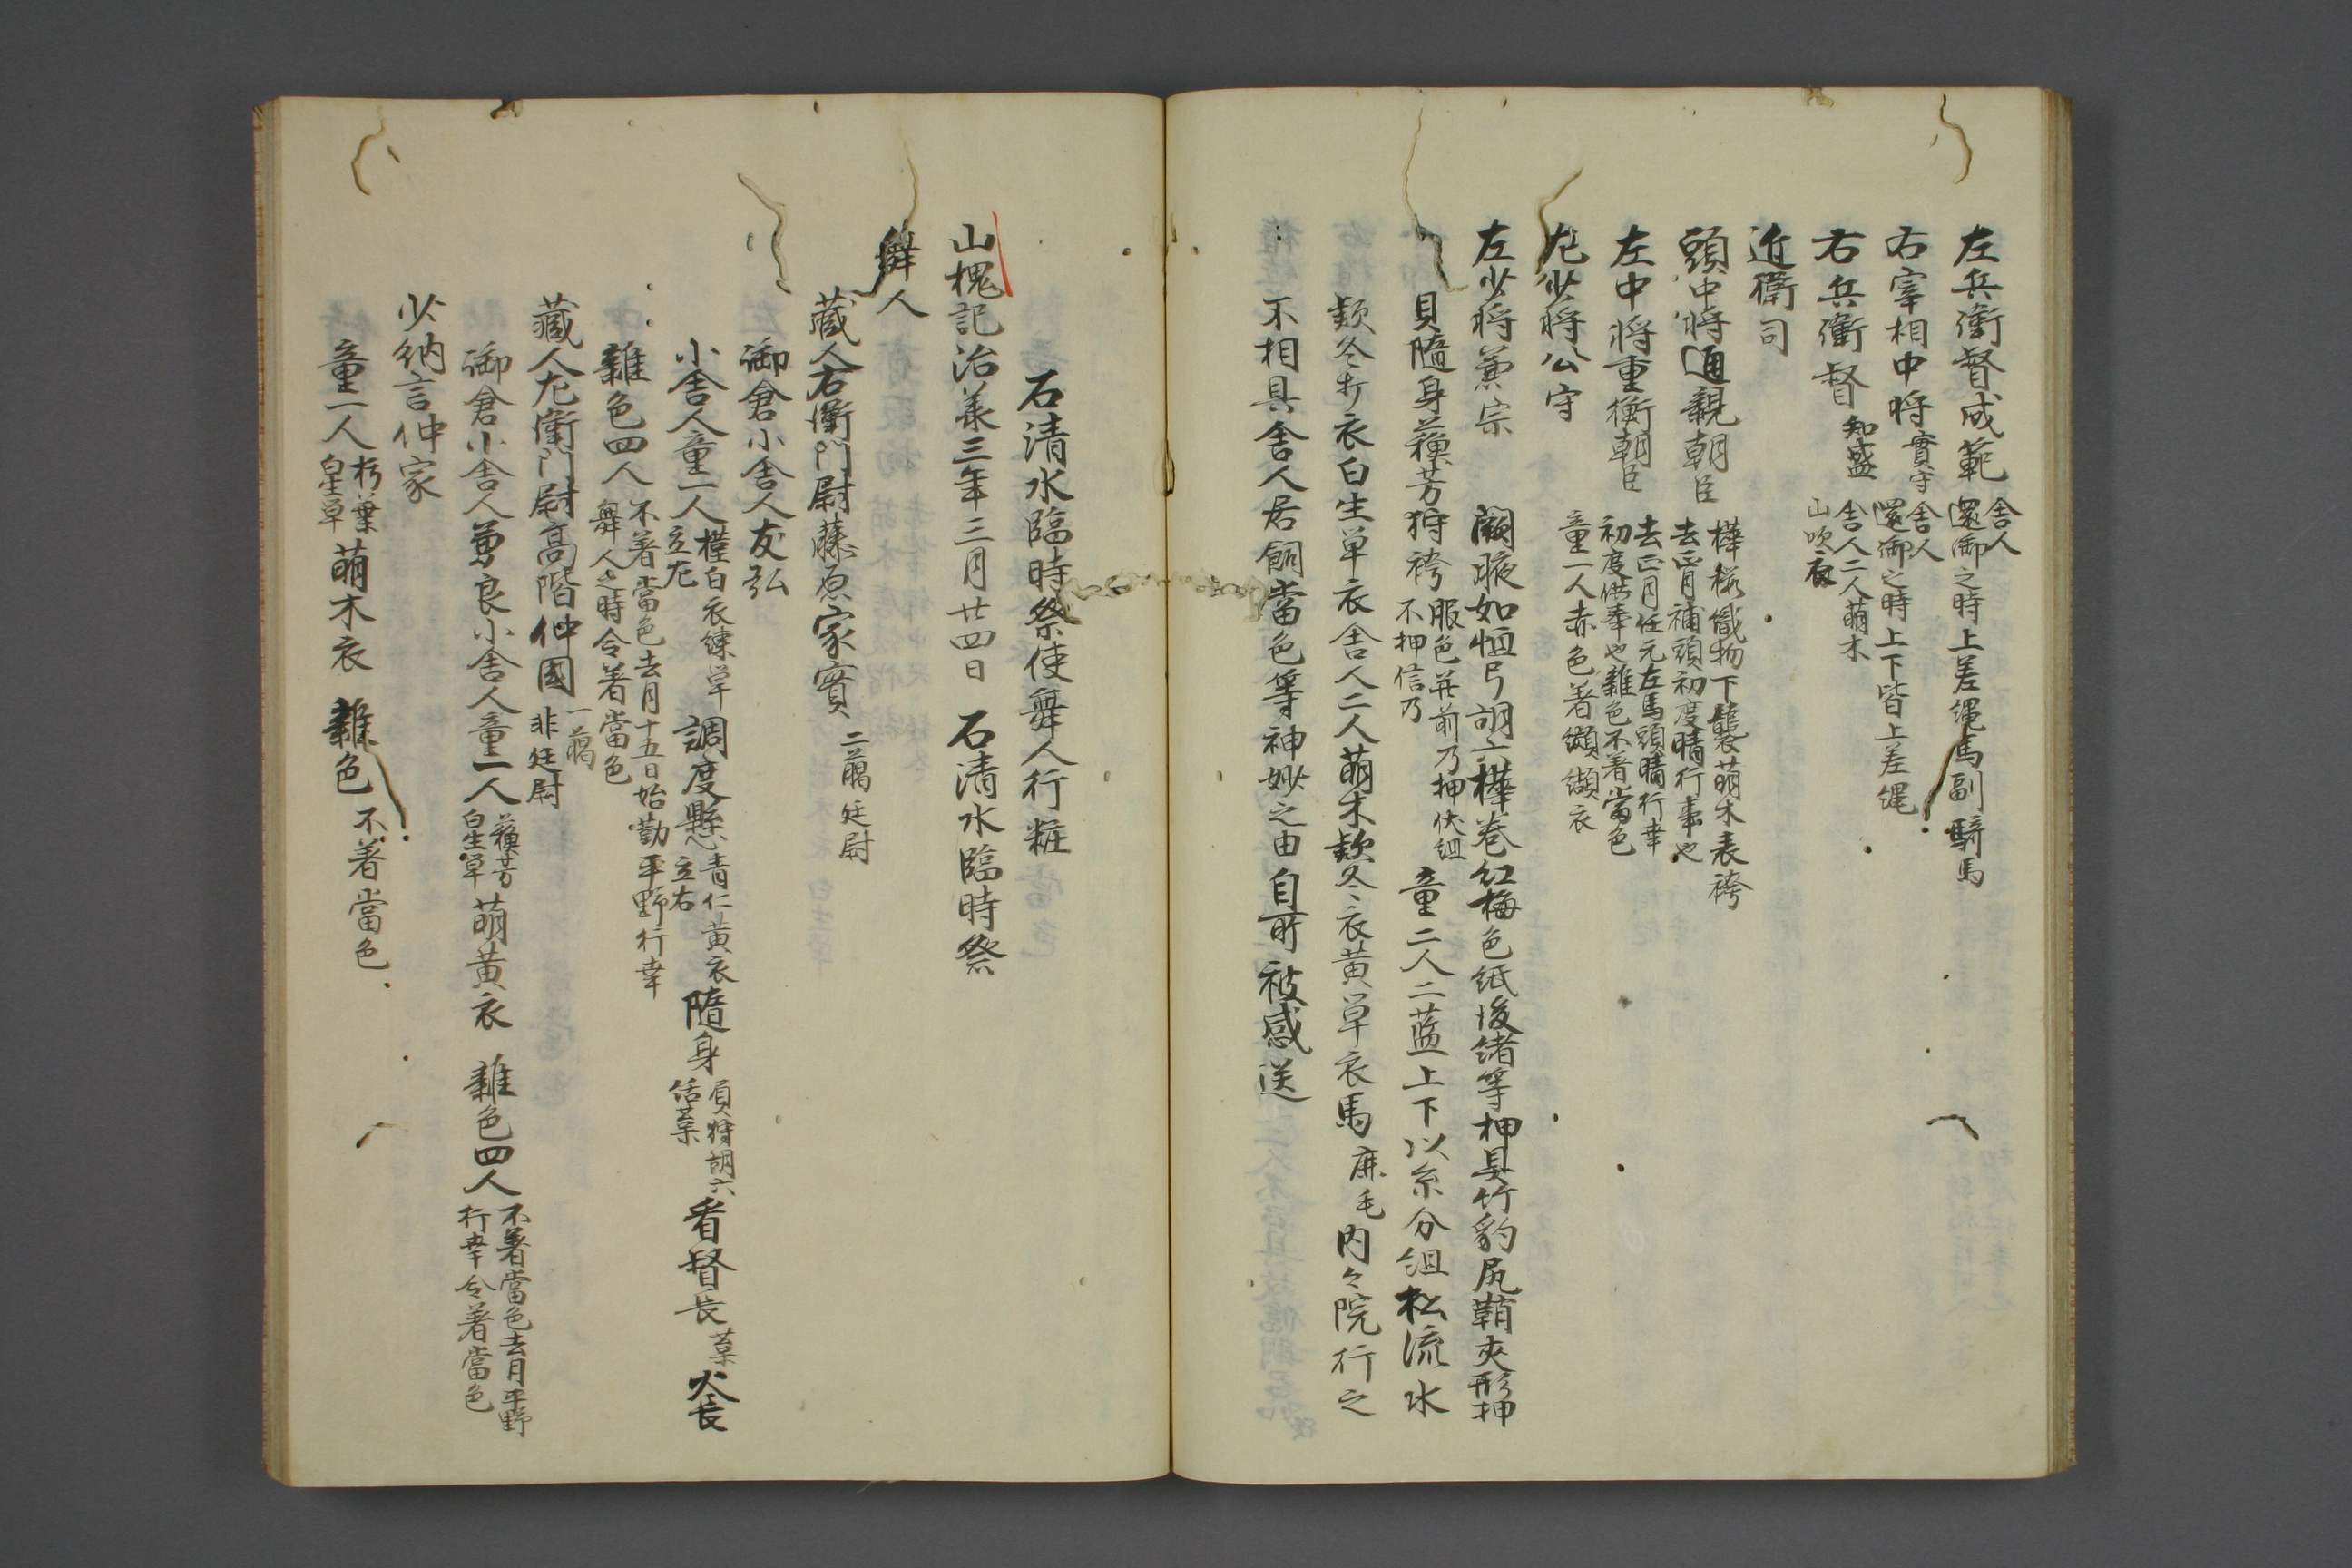 左兵衛督成範 舎人還御之時上差縄馬副騎馬
右宰相中将實守 舎人還御之時上下皆上差縄
右兵衛督知盛 舎人二人萌木山吹衣
近衛司
頭中将通親朝臣 樺桜織物下襲萌木表袴
去正月補頭初度晴行事也
左中将重衡朝臣 去正月任元左馬頭晴行幸
初度供奉也雑色不著當色
童一人赤色著纐纈衣
左少将公守
左少将兼宗 闕腋如恒弓胡六樺巻紅梅色紙後緒等押具竹豹尻鞘夾形押
貝隨身蘓芳狩袴 服色并前乃押伏組不押信乃 童二人二藍上下以糸分組松流水
欵冬打衣白生単衣舎人二人萌木欵冬衣黄単衣馬鹿毛内々院行之
不相具舎人居飼當色等神妙之由自所被感送
石清水臨時祭使舞人行粧
山槐記治美三年三月廿四日 石清水臨時祭
舞人
蔵人右衛門尉藤原家實 二﨟廷尉
御倉小舎人友弘
小舎人童一人 白衣練単立左 調度懸 青仁黄衣立右 隨身 負狩胡六 看督長 火長
雑色四人 不著當色去月十五日始勤平野行幸
舞人之時令著當色
蔵人左衛門尉高階仲國 一﨟非廷尉
御倉小舎人葛良小舎人童一人 蘓芳白生単 萌黄衣 雑色四人 不著當色去月平野行幸令著當色
少納言仲家
童一人 朽葉白生単 萌木衣 雑色 不著當色